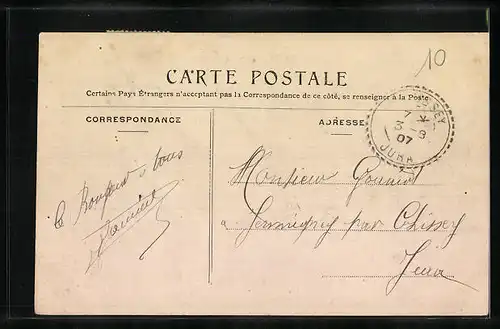 10
CARTE POSTALE
Certains Pays Étrangers n'acceptant pas la Correspondance de ce côté, se renseigner à la Poste
CORRESPONDANCE
ADRESSE
7 *
3 - 9
07
JURA
Le Bonjour à tous
Monsieur
à par Chissey
Jura